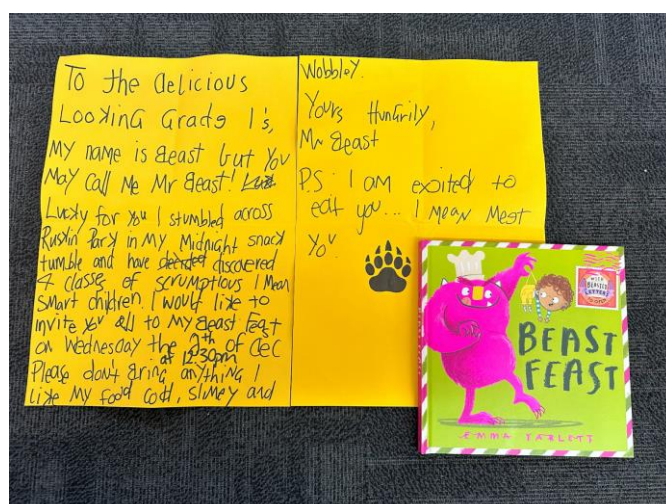 To the delicious
Looking Grade 1's,
My name is Beast but you
May call Me Mr Beast!
Lucky for you I stumbled across
Ruskin Park in My Midnight snack
tumble and have discovered
4 classes of scrumptious I Mean
smart children. I would like to
invite you all to My Beast Feast
on Wednesday the of Dec
at 12:30pm
Please don't Bring anything I
like My food cold, slimey and
Wobbley.
Yours Hungrily,
Mr Beast
P.S: I am exited to
eat you... I Mean Meet
You.
BEAST
FEAST
EMMA YARLETT